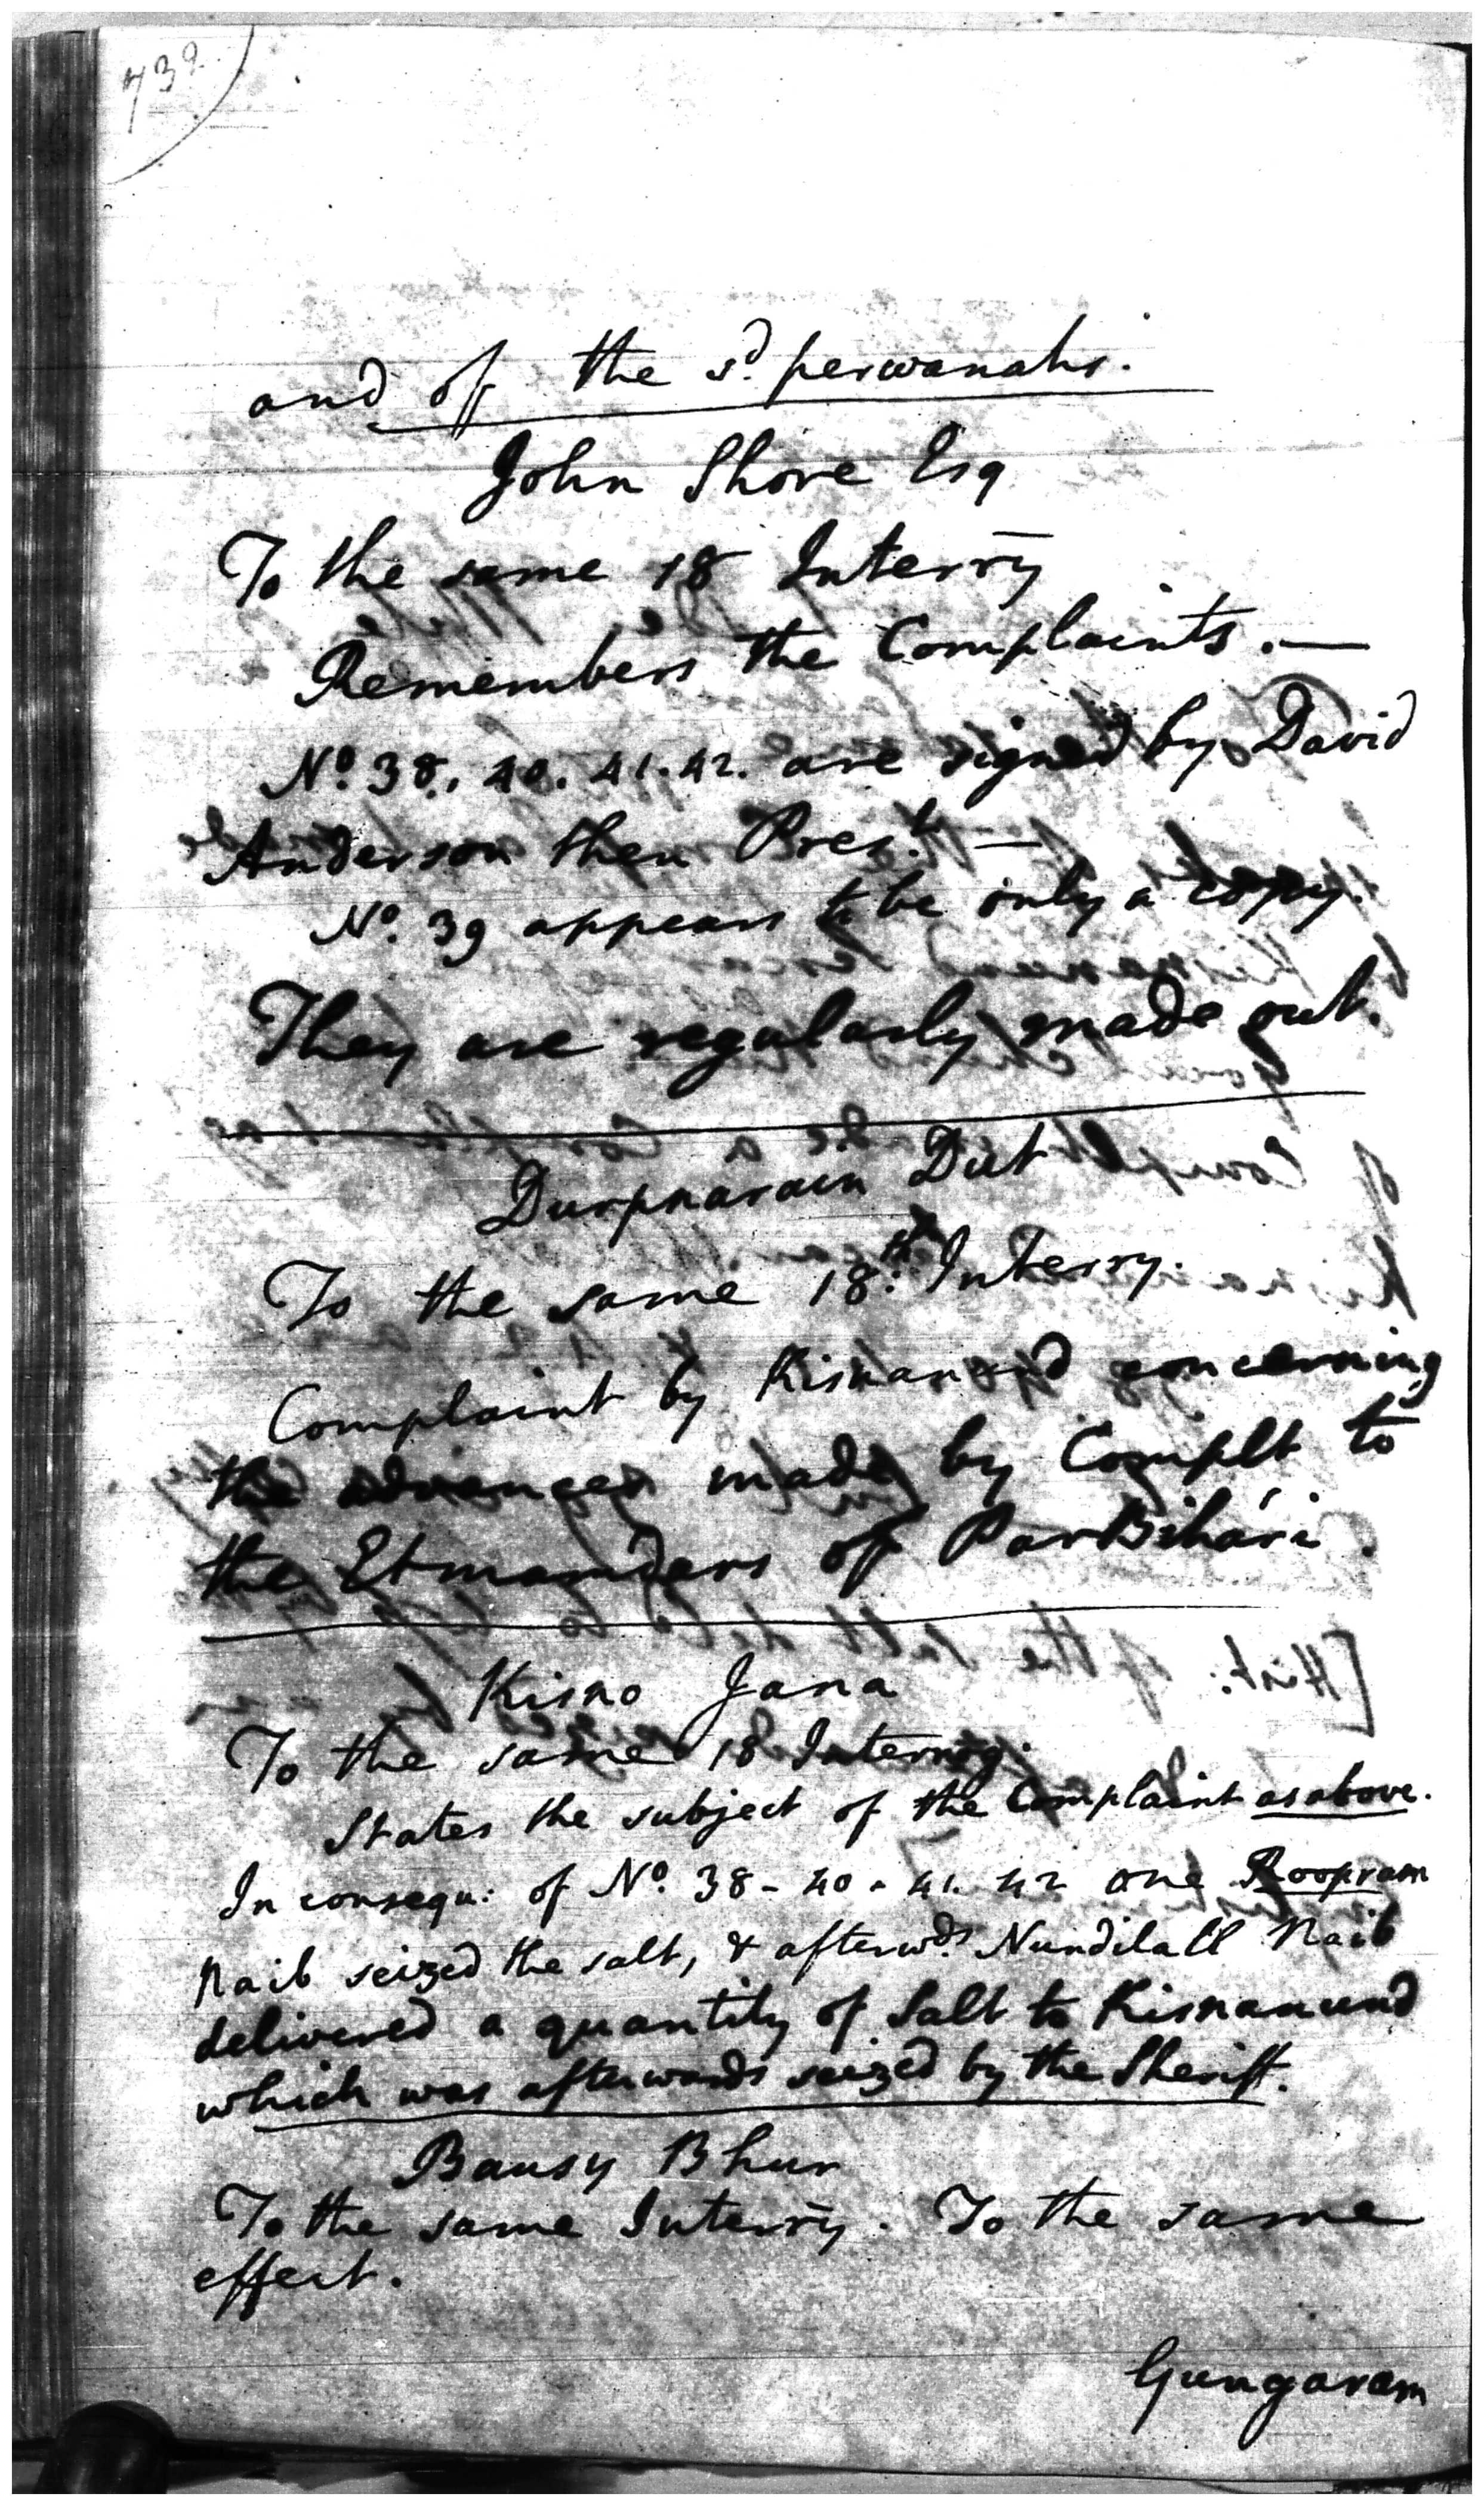 732
and of the sd. perwanahs.
John Shore Esq
To the same 18 Interry
Remembers the Complaints. —
No. 38. 40. 41. 42. are signed by David
Anderson then Prest. —
No. 39 appears to be only a copy.
They are regularly made out.
Durpnarain Dut
To the same 18th. Interry.
Complaint by Kisnanund concerning
the advances made by Complt to
the Etmamdars of ParBihári.
Kisno Jana
To the same 18 Interrog.
States the subject of the Complaint as above.
In consequ: of No. 38 - 40 - 41. 42 one Roopram
Naib seized the salt, & afterwds. Nundilall Naib
delivered a quantity of Salt to Kisnanund
which was afterwards seized by the Sheriff.
Bausy Bhur
To the same Interry. To the same
effect.
Gungaram